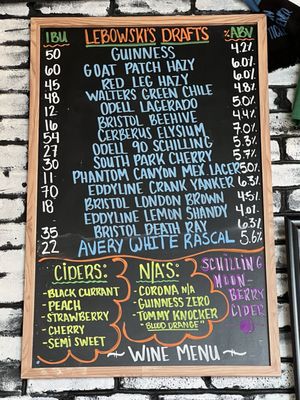 IBU LEBOWSKI'S DRAFTS %ABV
50 GUINNESS 4.2%
60 GOAT PATCH HAZY 6.0%
45 RED LEG HAZY 6.0%
48 WALTERS GREEN CHILE 4.8%
12 ODELL LAGERADO 5.0%
16 BRISTOL BEEHIVE 4.4%
54 CERBERUS ELYSIUM 7.0%
27 ODELL 90 SCHILLING 5.3%
30 SOUTH PARK CHERRY 5.7%
11 PHANTOM CANYON MEX LAGER 5.0%
70 EDDYLINE CRANK YANKER 6.3%
18 BRISTOL LONDON BROWN 4.5%
EDDYLINE LEMON SHANDY 4.0%
35 BRISTOL DEATH RAY 6.5%
22 AVERY WHITE RASCAL 5.6%
CIDERS:
- BLACK CURRANT
- PEACH
- STRAWBERRY
- CHERRY
- SEMI SWEET
N/A'S:
- CORONA N/A
- GUINNESS ZERO
- TOMMY KNOCKER
"BLOOD ORANGE"
SCHILLING
MOON-
BERRY
CIDER
WINE MENU